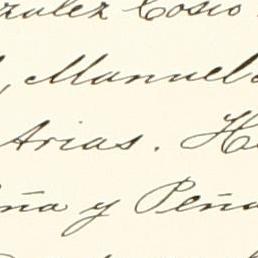 zalez Cosio
, Manuel
Arias. He
ña y Peña